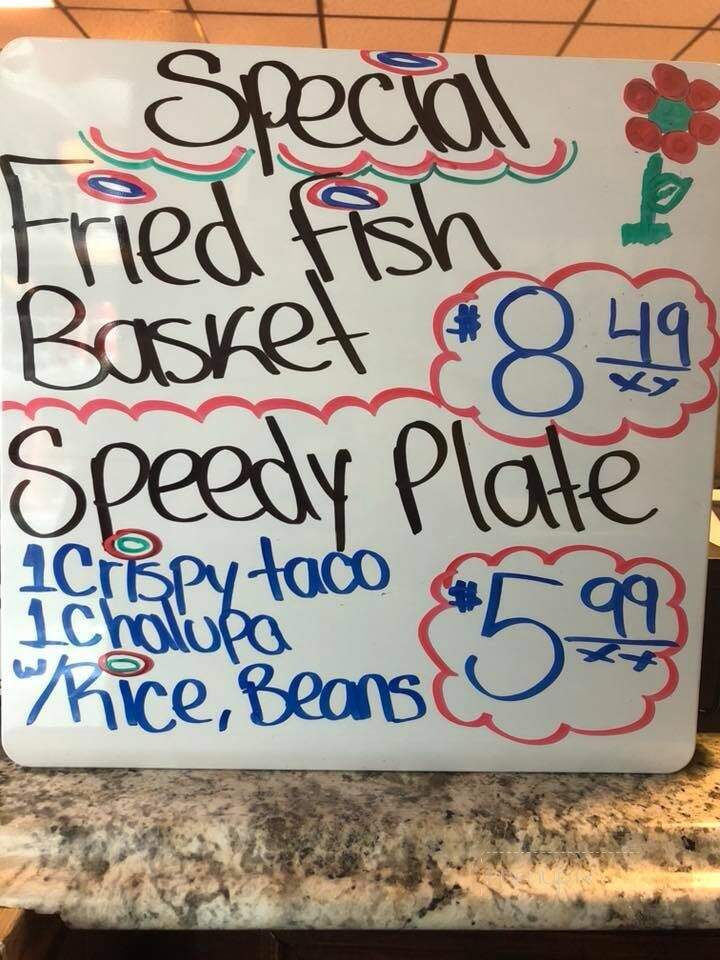 Special
Fried fish
Basket
$8 49
xx
Speedy Plate
1 Crispy taco
1 Chalupa
w/Rice, Beans
$5 99
xx